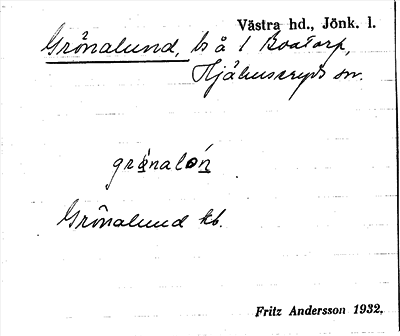 Västra hd., Jönk. l.
Grönalund, bs å 1 Boatorp,
Hjälmseryds sn.
grönalón
Grönalund kb.
Fritz Andersson 1932.